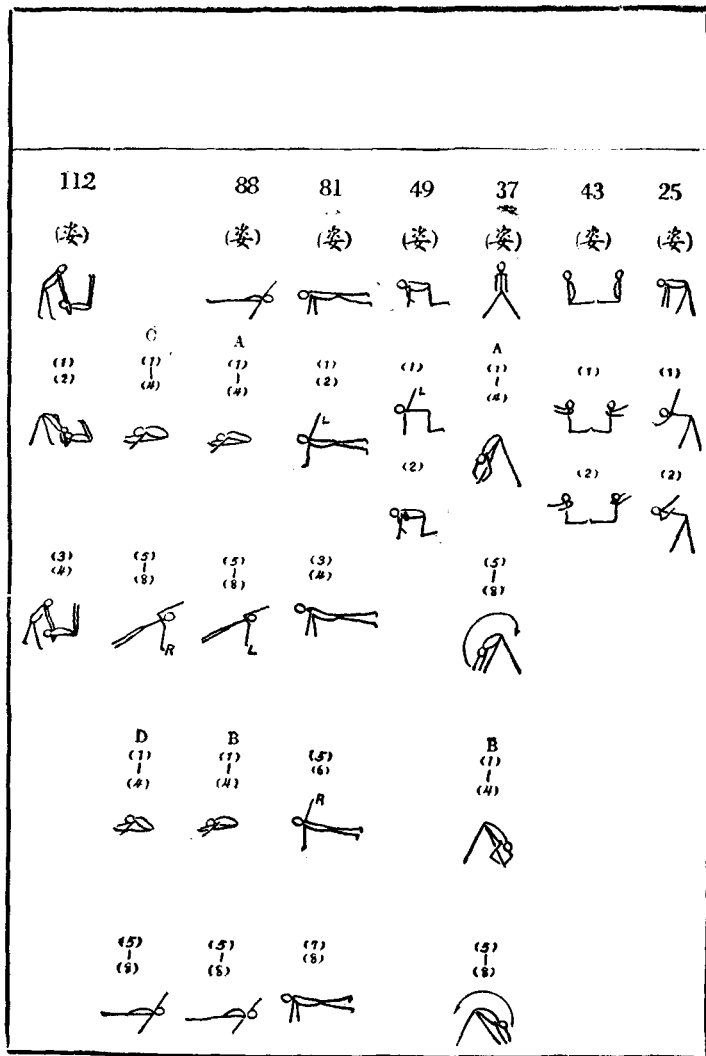 112 88 81 49 37 43 25
(姿) (姿) (姿) (姿) (姿) (姿) (姿)
C A A
(1) (2) (1) | (4) (1) | (4) (1) (2) (1) (1) | (4) (1) (1)
L L
(2) (2) (2)
(3) (4) (5) | (8) (5) | (8) (3) (4) (5) | (8)
R L
D B B
(1) | (4) (1) | (4) (5) (6) (1) | (4)
R
(5) | (8) (5) | (8) (7) (8) (5) | (8)